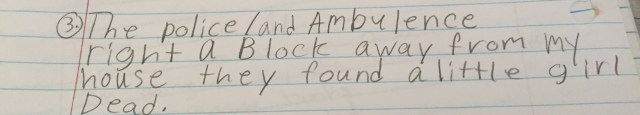 ③ The police/and Ambulence
right a Block away from my
house they found a little girl
Dead.